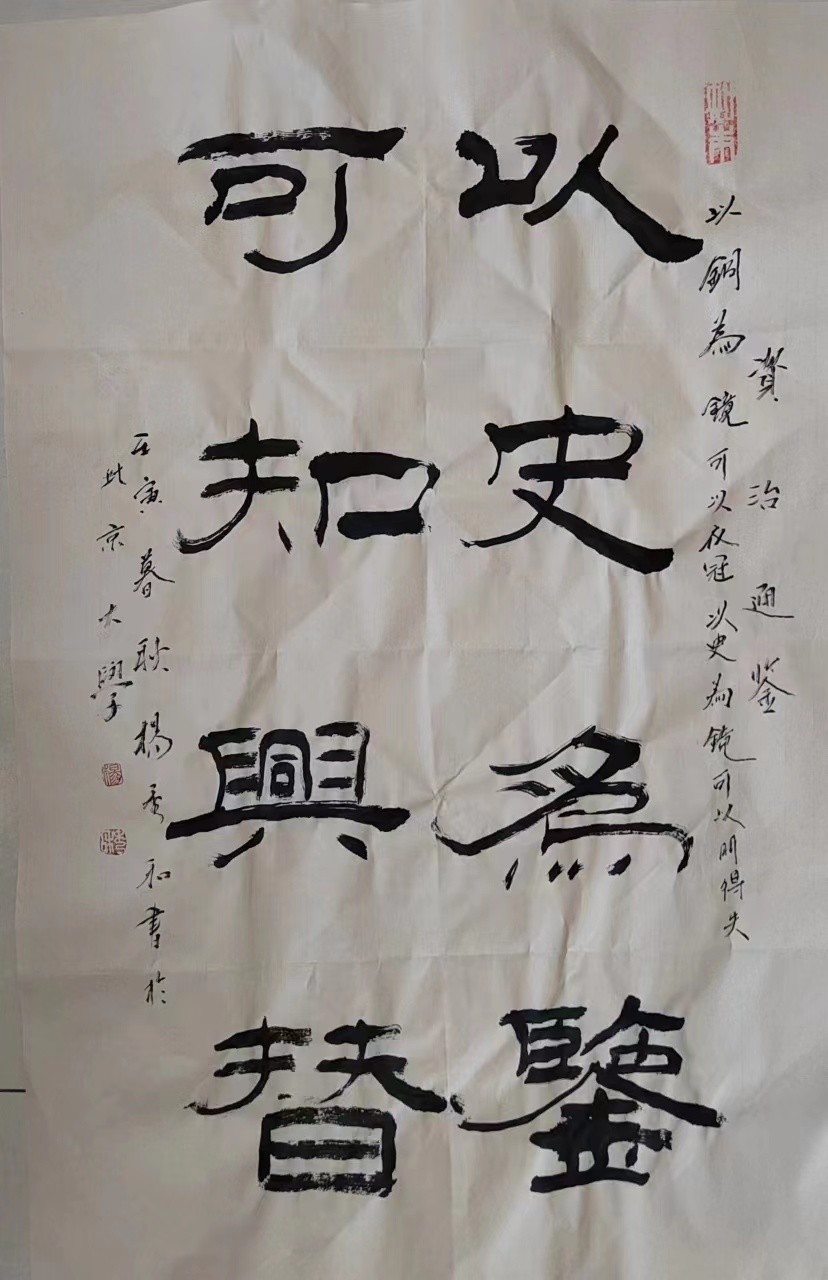 資治通鉴
以銅為鏡可以衣冠以史為鏡可以明得失
以史為鑒
可知興替
壬寅暮秋楊和書於
北京大學